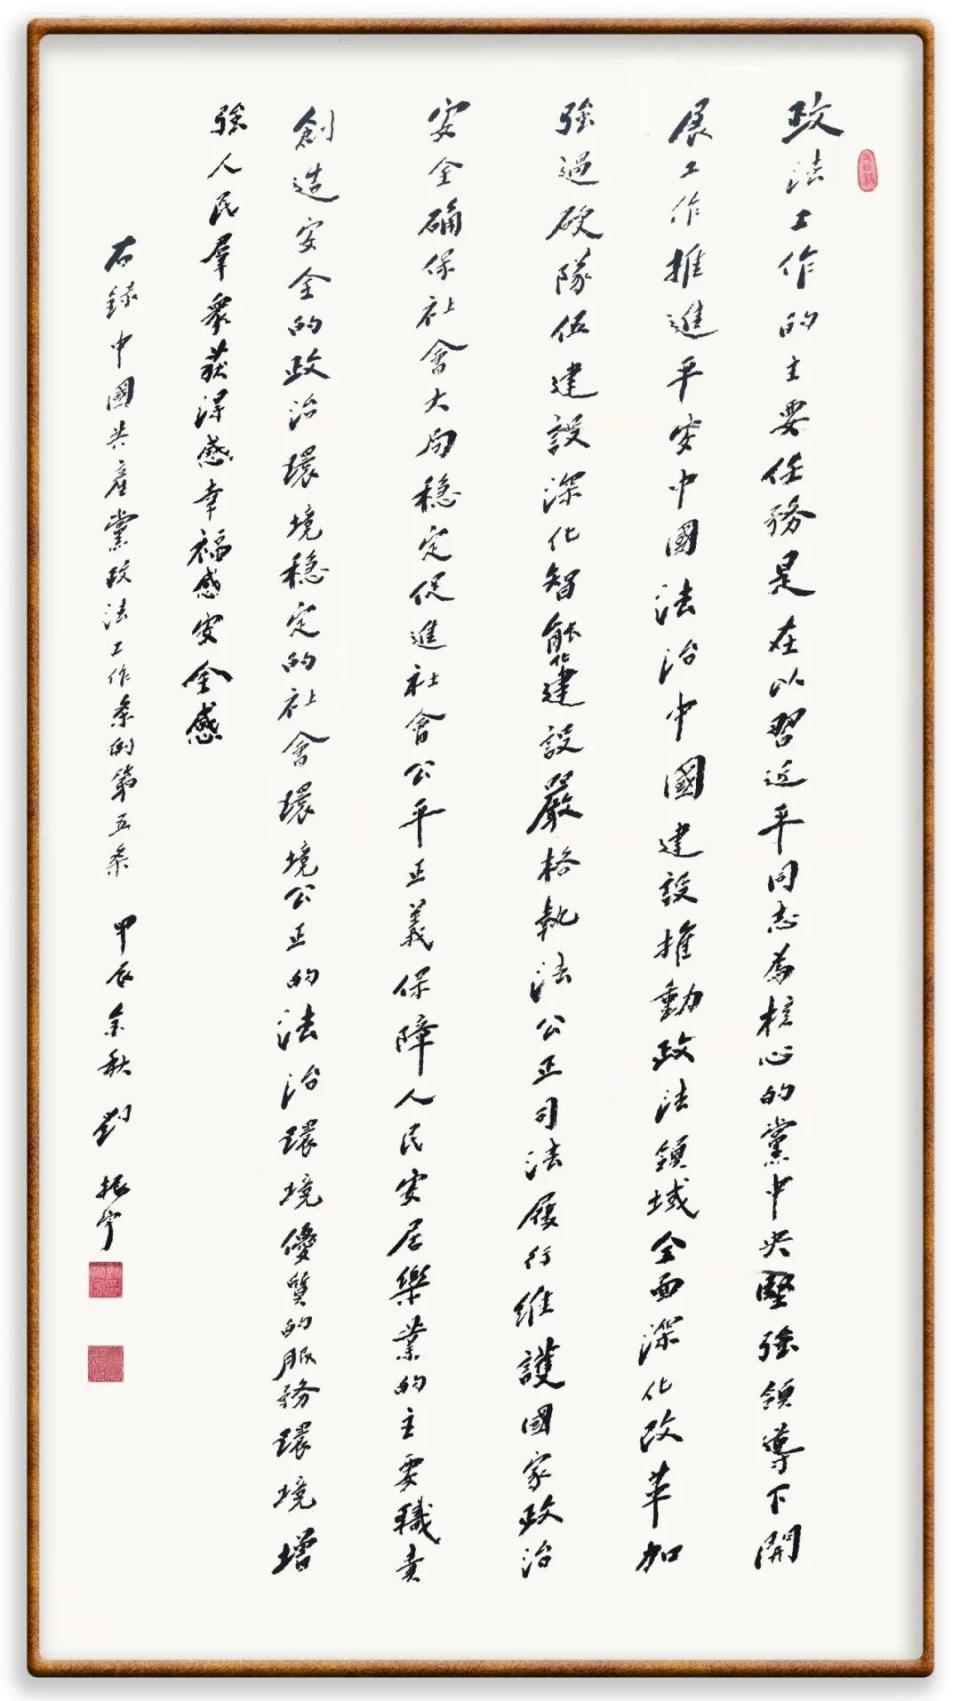 政法工作的主要任務是在以習近平同志為核心的黨中央堅強領導下開
展工作推進平安中國法治中國建設推動政法領域全面深化改革加
強過硬隊伍建設深化智能化建設嚴格執法公正司法履行維護國家政治
安全確保社會大局穩定促進社會公平正義保障人民安居樂業的主要職責
創造安全的政治環境穩定的社會環境公正的法治環境優質的服務環境增
強人民羣眾獲得感幸福感安全感
右錄中國共產黨政法工作條例第五條 甲辰金秋 劉振宇